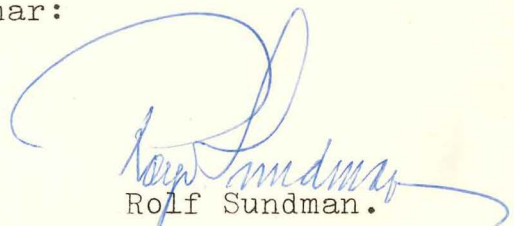 nar:
Rolf Sundman
Rolf Sundman.